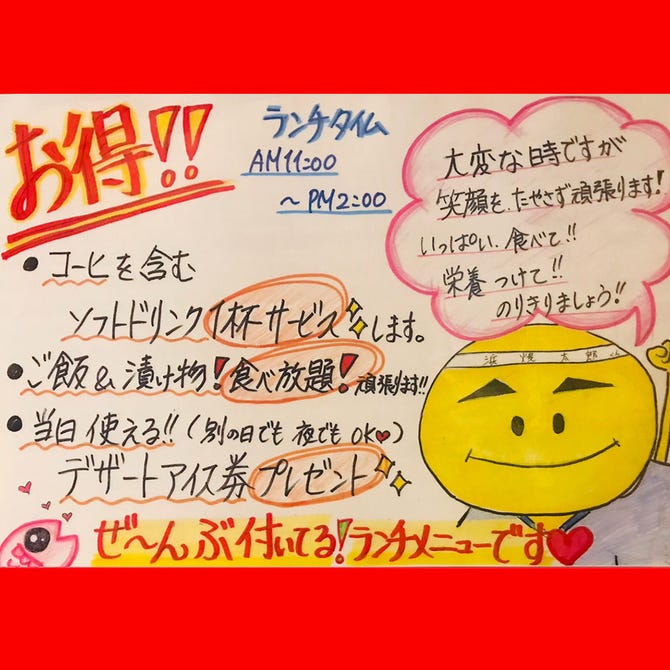 お得!!
ランチタイム
AM11:00
～PM2:00
大変な時ですが
笑顔を、たやさず頑張ります!
いっぱい、食べて!!
栄養つけて!!
のりきりましょう!!
● コーヒを含む
ソフトドリンク1杯サービスします。
● ご飯&漬け物!食べ放題!頑張ります!!
● 当日使える!!(別の日でも夜でもOK♥)
デザートアイス券プレゼント
浜焼太郎くん
ぜ〜んぶ付いてる!ランチメニューです♥